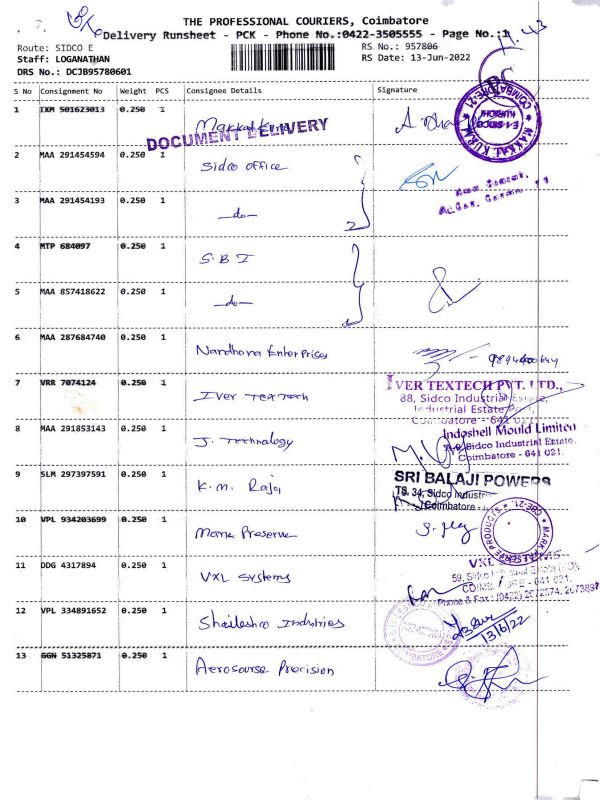 THE PROFESSIONAL COURIERS, Coimbatore
Delivery Runsheet - PCK - Phone No.:0422-3505555 - Page No.:1
Route: SIDCO E
RS No.: 957806
Staff: LOGANATHAN
RS Date: 13-Jun-2022
DRS No.: DCJB95780601
S No Consignment No Weight PCS Consignee Details Signature
1 IXM 501623013 0.250 1
DOCUMENT DELIVERY
MAKKAL KURAL
E-1-SIDCO
KURICHI
COIMBATORE-21
2 MAA 291454594 0.250 1 Sidco office
3 MAA 291454193 0.250 1 -do- 2
4 MTP 684097 0.250 1 S.B I
5 MAA 857418622 0.250 1 -do- 2
6 MAA 287684740 0.250 1 Nardhana Enterprises
7 VRR 7074124 0.250 1 Iver Tex Tech
IVER TEXTECH PVT. LTD.,
88, Sidco Industrial Estate,
Industrial Estate Post,
Coimbatore - 641 021
8 MAA 291853143 0.250 1 J. Technology
Indoshell Mould Limited
Sidco Industrial Estate,
Coimbatore - 641 021.
9 SLM 297397591 0.250 1 K.M. Raja
SRI BALAJI POWERS
TS, 34, Sidco Industri
Coimbatore -
10 VPL 934203699 0.250 1 Mark Preserve
MARK PRESERVE PRODUCTS
CBE-21
11 DDG 4317894 0.250 1 VXL Systems
VXL
59,
Phone & Fax : (0422) 2672674, 2673897
12 VPL 334891652 0.250 1 Shaileshco Industries
13/6/22
13 GGN 51325871 0.250 1 Aerosourse Precision